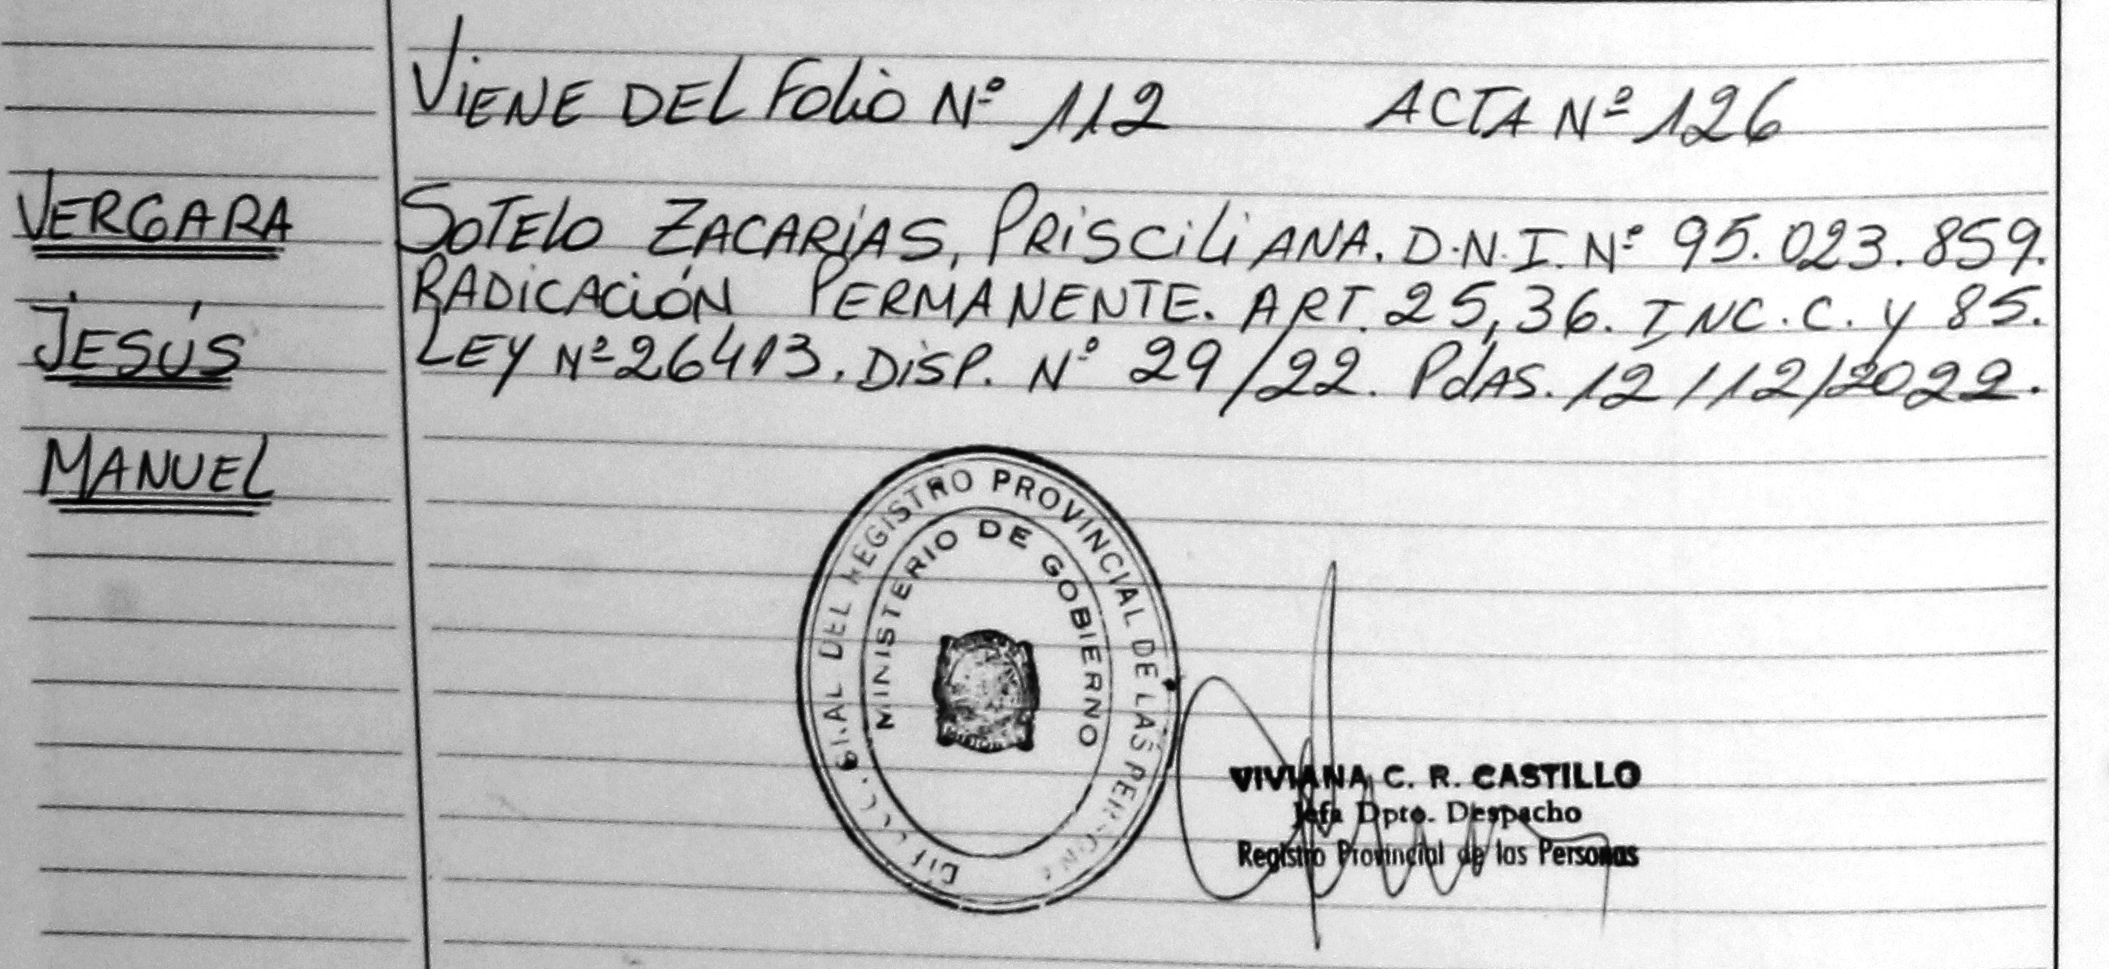 VIENE DEL FOLIO Nº 112 ACTA Nº 126
VERGARA
JESÚS
MANUEL
SOTELO ZACARÍAS, PRISCILIANA. D.N.I. Nº 95.023.859.
RADICACIÓN PERMANENTE. ART. 25, 36. INC. C. Y 85.
LEY Nº 26413. DISP. Nº 29/22. PdAS. 12/12/2022.
DEL REGISTRO PROVINCIAL DE LAS
MINISTERIO DE GOBIERNO
VIVIANA C. R. CASTILLO
Jefa Dpto. Despacho
Registro Provincial de las Personas